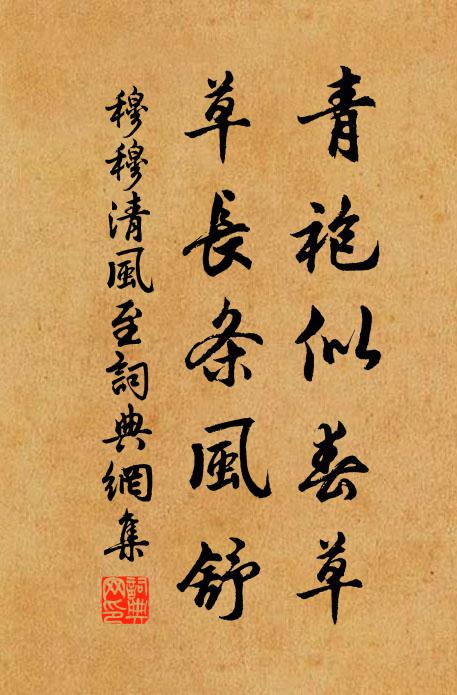 青袍似春草
草長条風舒
穆穆清風至詞典網集
詞典网印